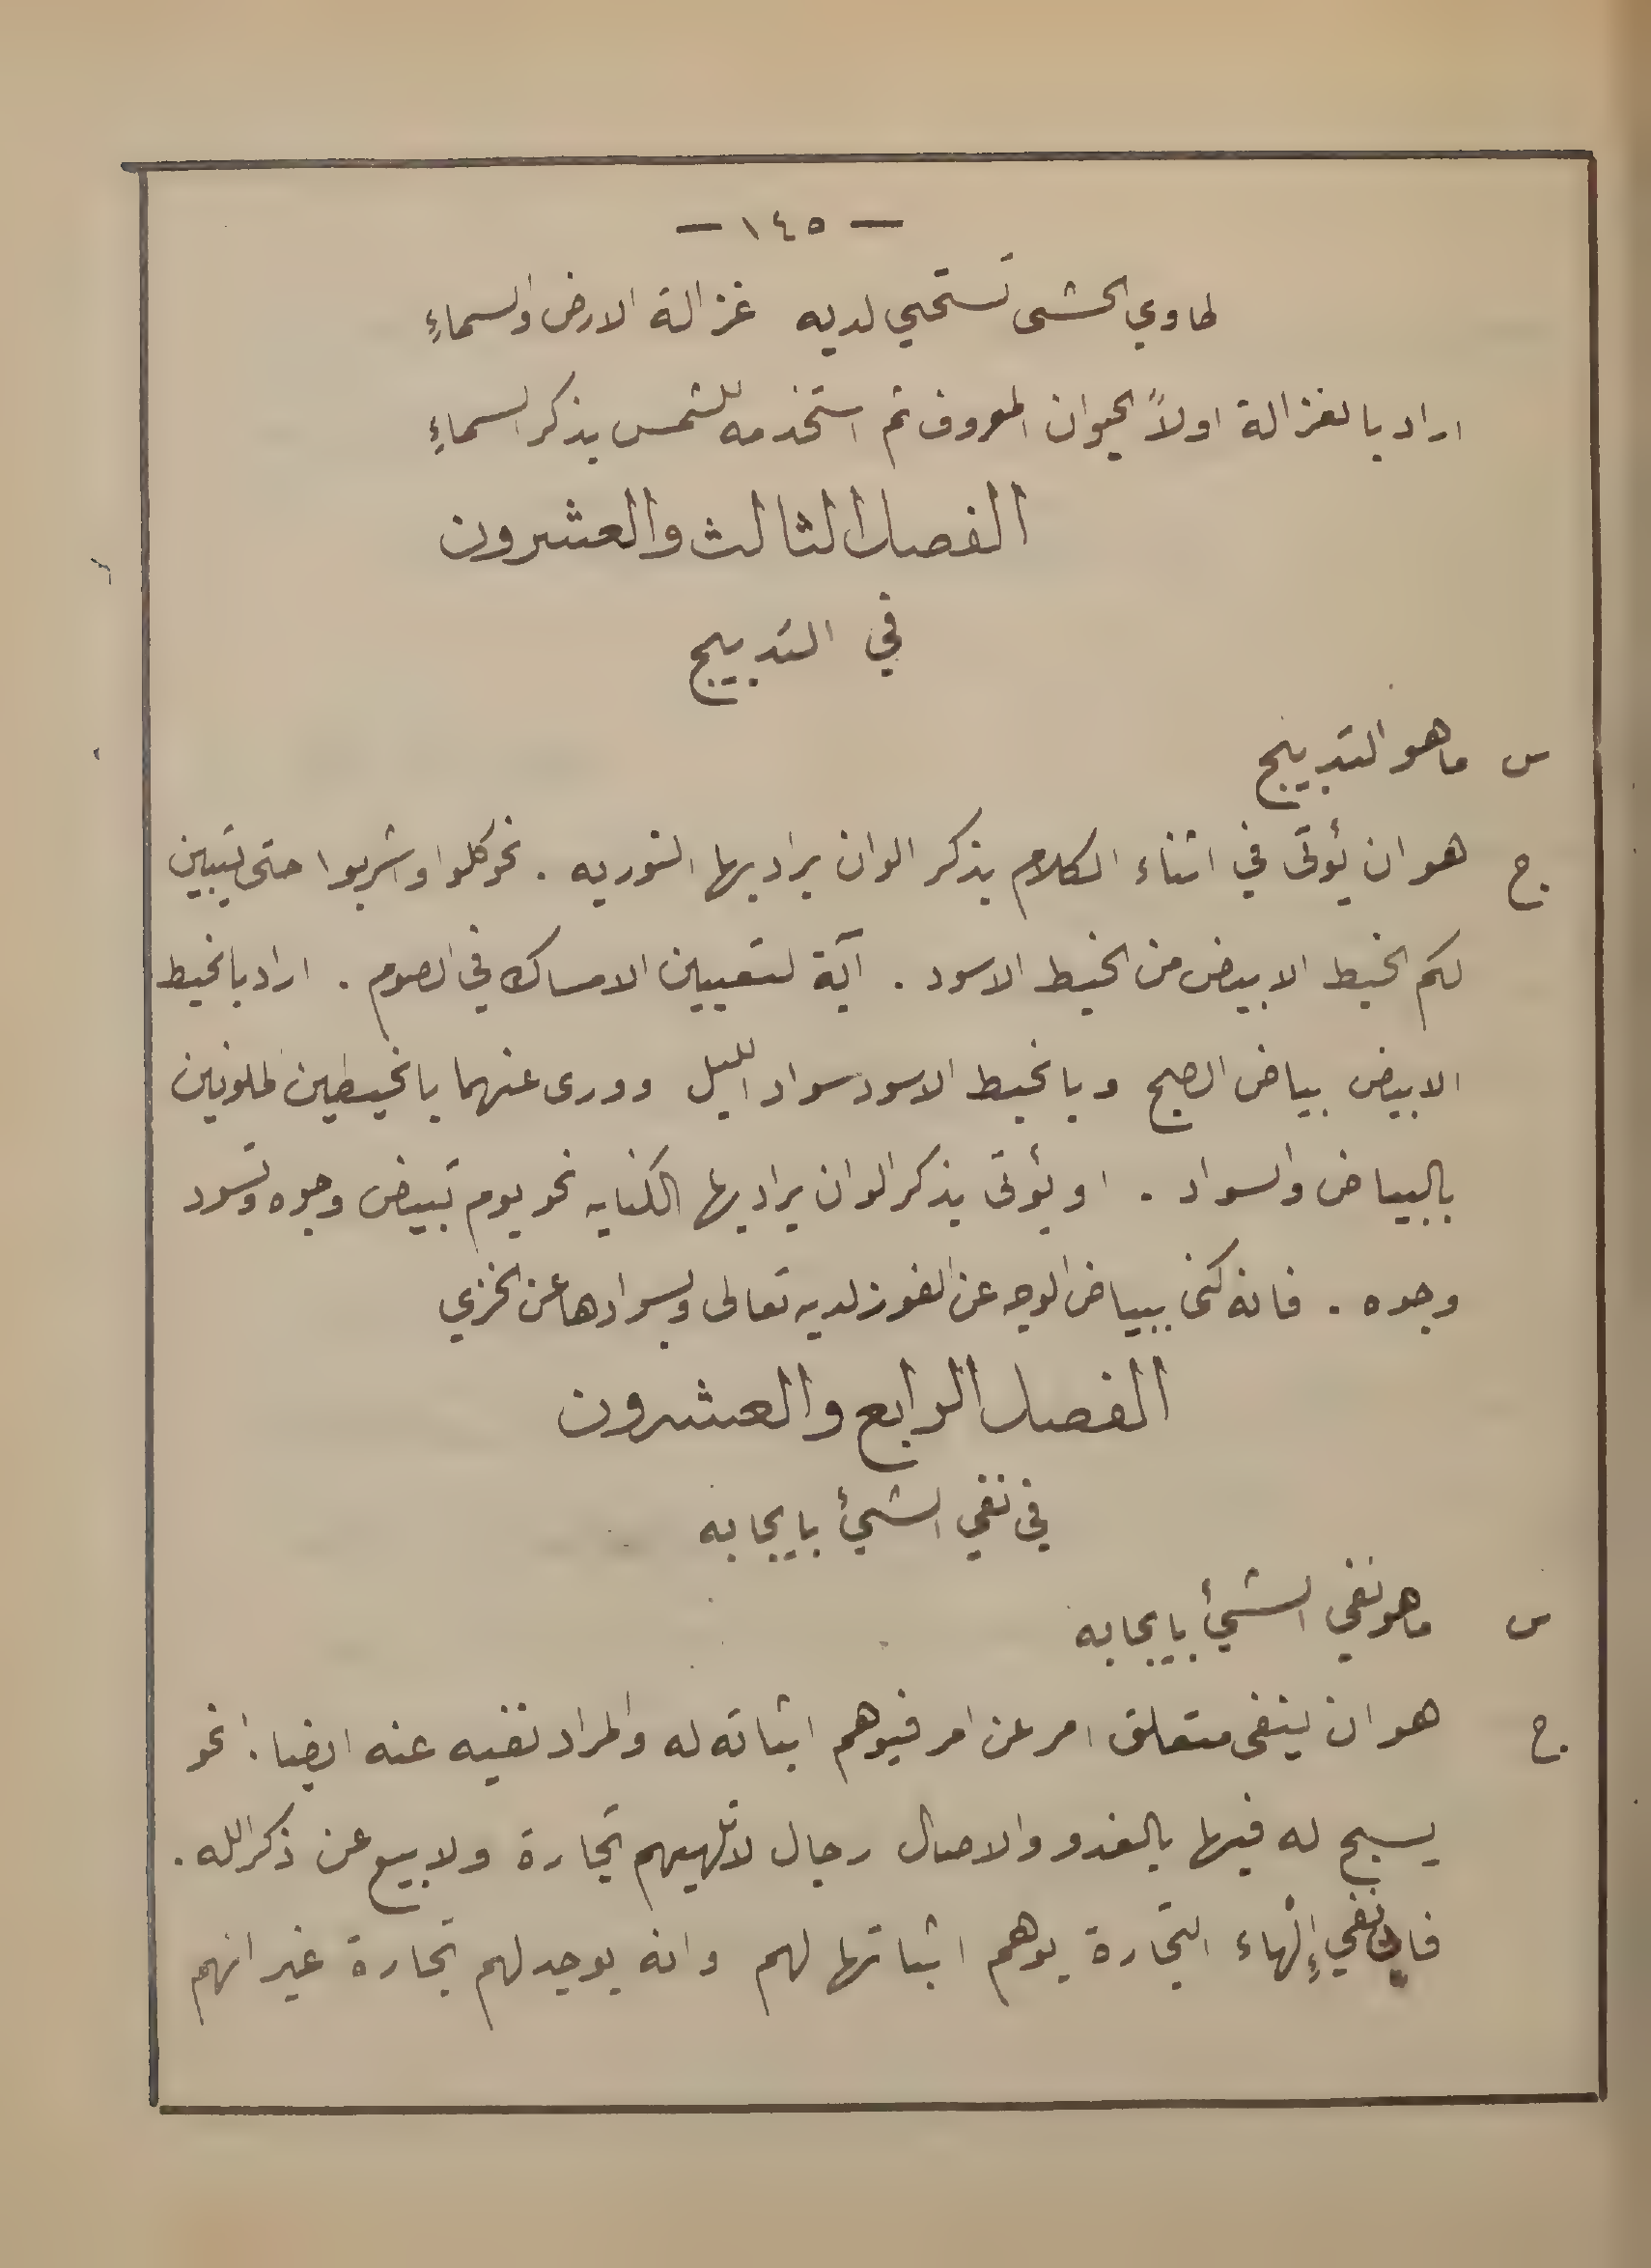 — ١٤٥ —
طاوي الحشى تستحي لديه غزالة الارض والسماءِ
اراد بالغزالة اولاً الحيوان المعروف ثم استخدمه للشمس بذكر السماءِ
الفصل الثالث والعشرون
في التدبيج
س ما هو التدبيج
ج هو ان يُؤتى في اثناء الكلام بذكر الوان يراد بها التوريه . نحو كلوا واشربوا حتى يتبين
لكم الخيط الابيض من الخيط الاسود . آية لتعيين الامساك في الصوم . اراد بالخيط
الابيض بياض الصبح وبالخيط الاسود سواد الليل وورى عنهما بالخيطين الملونين
بالبياض والسواد . او يُؤتى بذكر الوان يراد بها الكنايه نحو يوم تبيض وجوه وتسود
وجوه . فانه كنى ببياض الوجه عن الفوز لديه تعالى وبسوادها عن الخزي
الفصل الرابع والعشرون
في نفي الشيئ بايجابه
س ما هو نفي الشيئ بايجابه
ج هو ان ينفى متعلق امر عن امر فيوهم اثباته له والمراد نفيه عنه ايضا . نحو
يسبح له فيها بالغدو والاصال رجال لا تلهيهم تجارة ولا بيع عن ذكر الله .
فان نفي إِلْهاء التجارة يوهم اثباتها لهم وانه يوجد لهم تجارة غير انهم